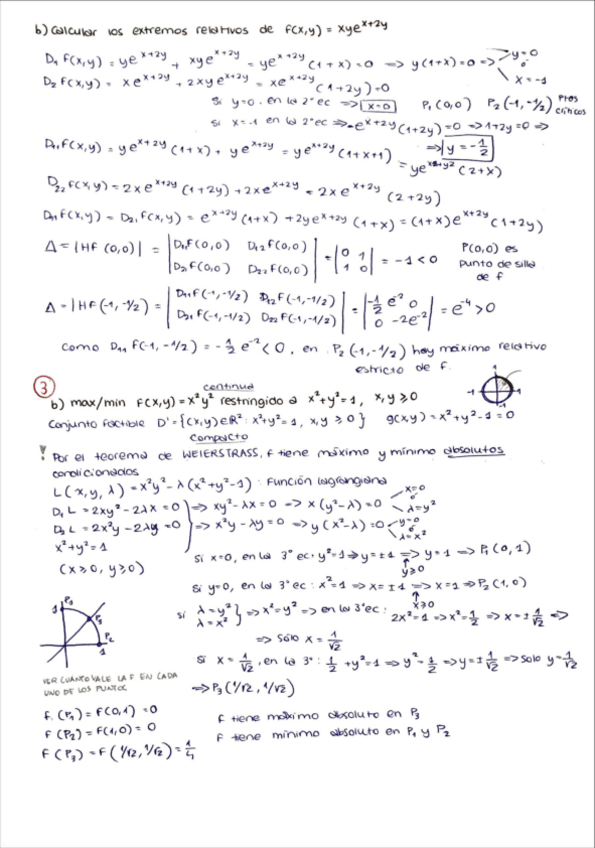 b) Calcular los extremos relativos de f(x,y) = xye^x+2y
D₁ f(x,y) = ye^x+2y + xye^x+2y = ye^x+2y (1+x) = 0 => y(1+x) = 0 => y=0 ó x=-1
D₂ f(x,y) = xe^x+2y + 2xye^x+2y = xe^x+2y (1+2y) = 0
Si y=0. en la 2ª ec => x=0 P₁(0,0) P₂(-1,-1/2) Ptos críticos
Si x=-1 en la 2ª ec => -e^x+2y (1+2y) = 0 => 1+2y = 0 =>
=> y = -1/2
D₁₁ f(x,y) = ye^x+2y (1+x) + ye^x+2y = ye^x+2y (1+x+1)
= ye^x+y² (2+x)
D₂₂ f(x,y) = 2xe^x+2y (1+2y) + 2xe^x+2y = 2xe^x+2y (2+2y)
D₁₁ f(x,y) = D₂₁ f(x,y) = e^x+2y (1+x) + 2ye^x+2y (1+x) = (1+x)e^x+2y (1+2y)
Δ = |Hf (0,0)| = |D₁₁f(0,0) D₁₂f(0,0)| = |0 1| = -1 < 0 P(0,0) es
|D₂₁f(0,0) D₂₂f(0,0)| |1 0| punto de silla de f
Δ = |Hf(-1,-1/2)| = |D₁₁f(-1,-1/2) D₁₂f(-1,-1/2)| = |-1/2 e^-2 0| = e^-4 > 0
|D₂₁f(-1,-1/2) D₂₂f(-1,-1/2)| |0 -2e^-2|
Como D₁₁ f(-1,-1/2) = -1/2 e^-2 < 0, en P₂(-1,-1/2) hay máximo relativo
estricto de f.
continua
1
-1 1
-1
③
b) max/min f(x,y) = x²y² restringido a x²+y²=1, x,y ≥ 0
Conjunto factible D' = {(x,y)∈R²: x²+y²=1, x,y ≥ 0} g(x,y) = x²+y²-1=0
compacto
! Por el teorema de WEIERSTRASS, f tiene máximo y mínimo absolutos
condicionados
L(x,y,λ) = x²y² - λ(x²+y²-1) : Función lagrangiana
D₁ L = 2xy² - 2λx = 0 => xy² - λx = 0 => x(y²-λ) = 0 x=0 ó λ=y²
D₂ L = 2x²y - 2λy = 0 => x²y - λy = 0 => y(x²-λ) = 0 y=0 ó λ=x²
x²+y² = 1
(x≥0, y≥0)
Si x=0, en la 3ª ec: y²=1 => y=±1 => y=1 => P₁(0,1)
y≥0
Si y=0, en la 3ª ec: x²=1 => x=±1 => x=1 => P₂(1,0)
x≥0
1 P₁
P₃
P₂
1
Si λ=y² λ=x² => x²=y² => en la 3ª ec: 2x²=1 => x²=1/2 => x=±1/√2 =>
=> sólo x = 1/√2
Si x = 1/√2, en la 3ª: 1/2 + y² = 1 => y² = 1/2 => y = ±1/√2 => solo y = 1/√2
=> P₃(1/√2, 1/√2)
VER CUANTO VALE LA F EN CADA
UNO DE LOS PUNTOS
f (P₁) = f(0,1) = 0
f (P₂) = f(1,0) = 0
f (P₃) = f(1/√2, 1/√2) = 1/4
f tiene máximo absoluto en P₃
f tiene mínimo absoluto en P₁ y P₂